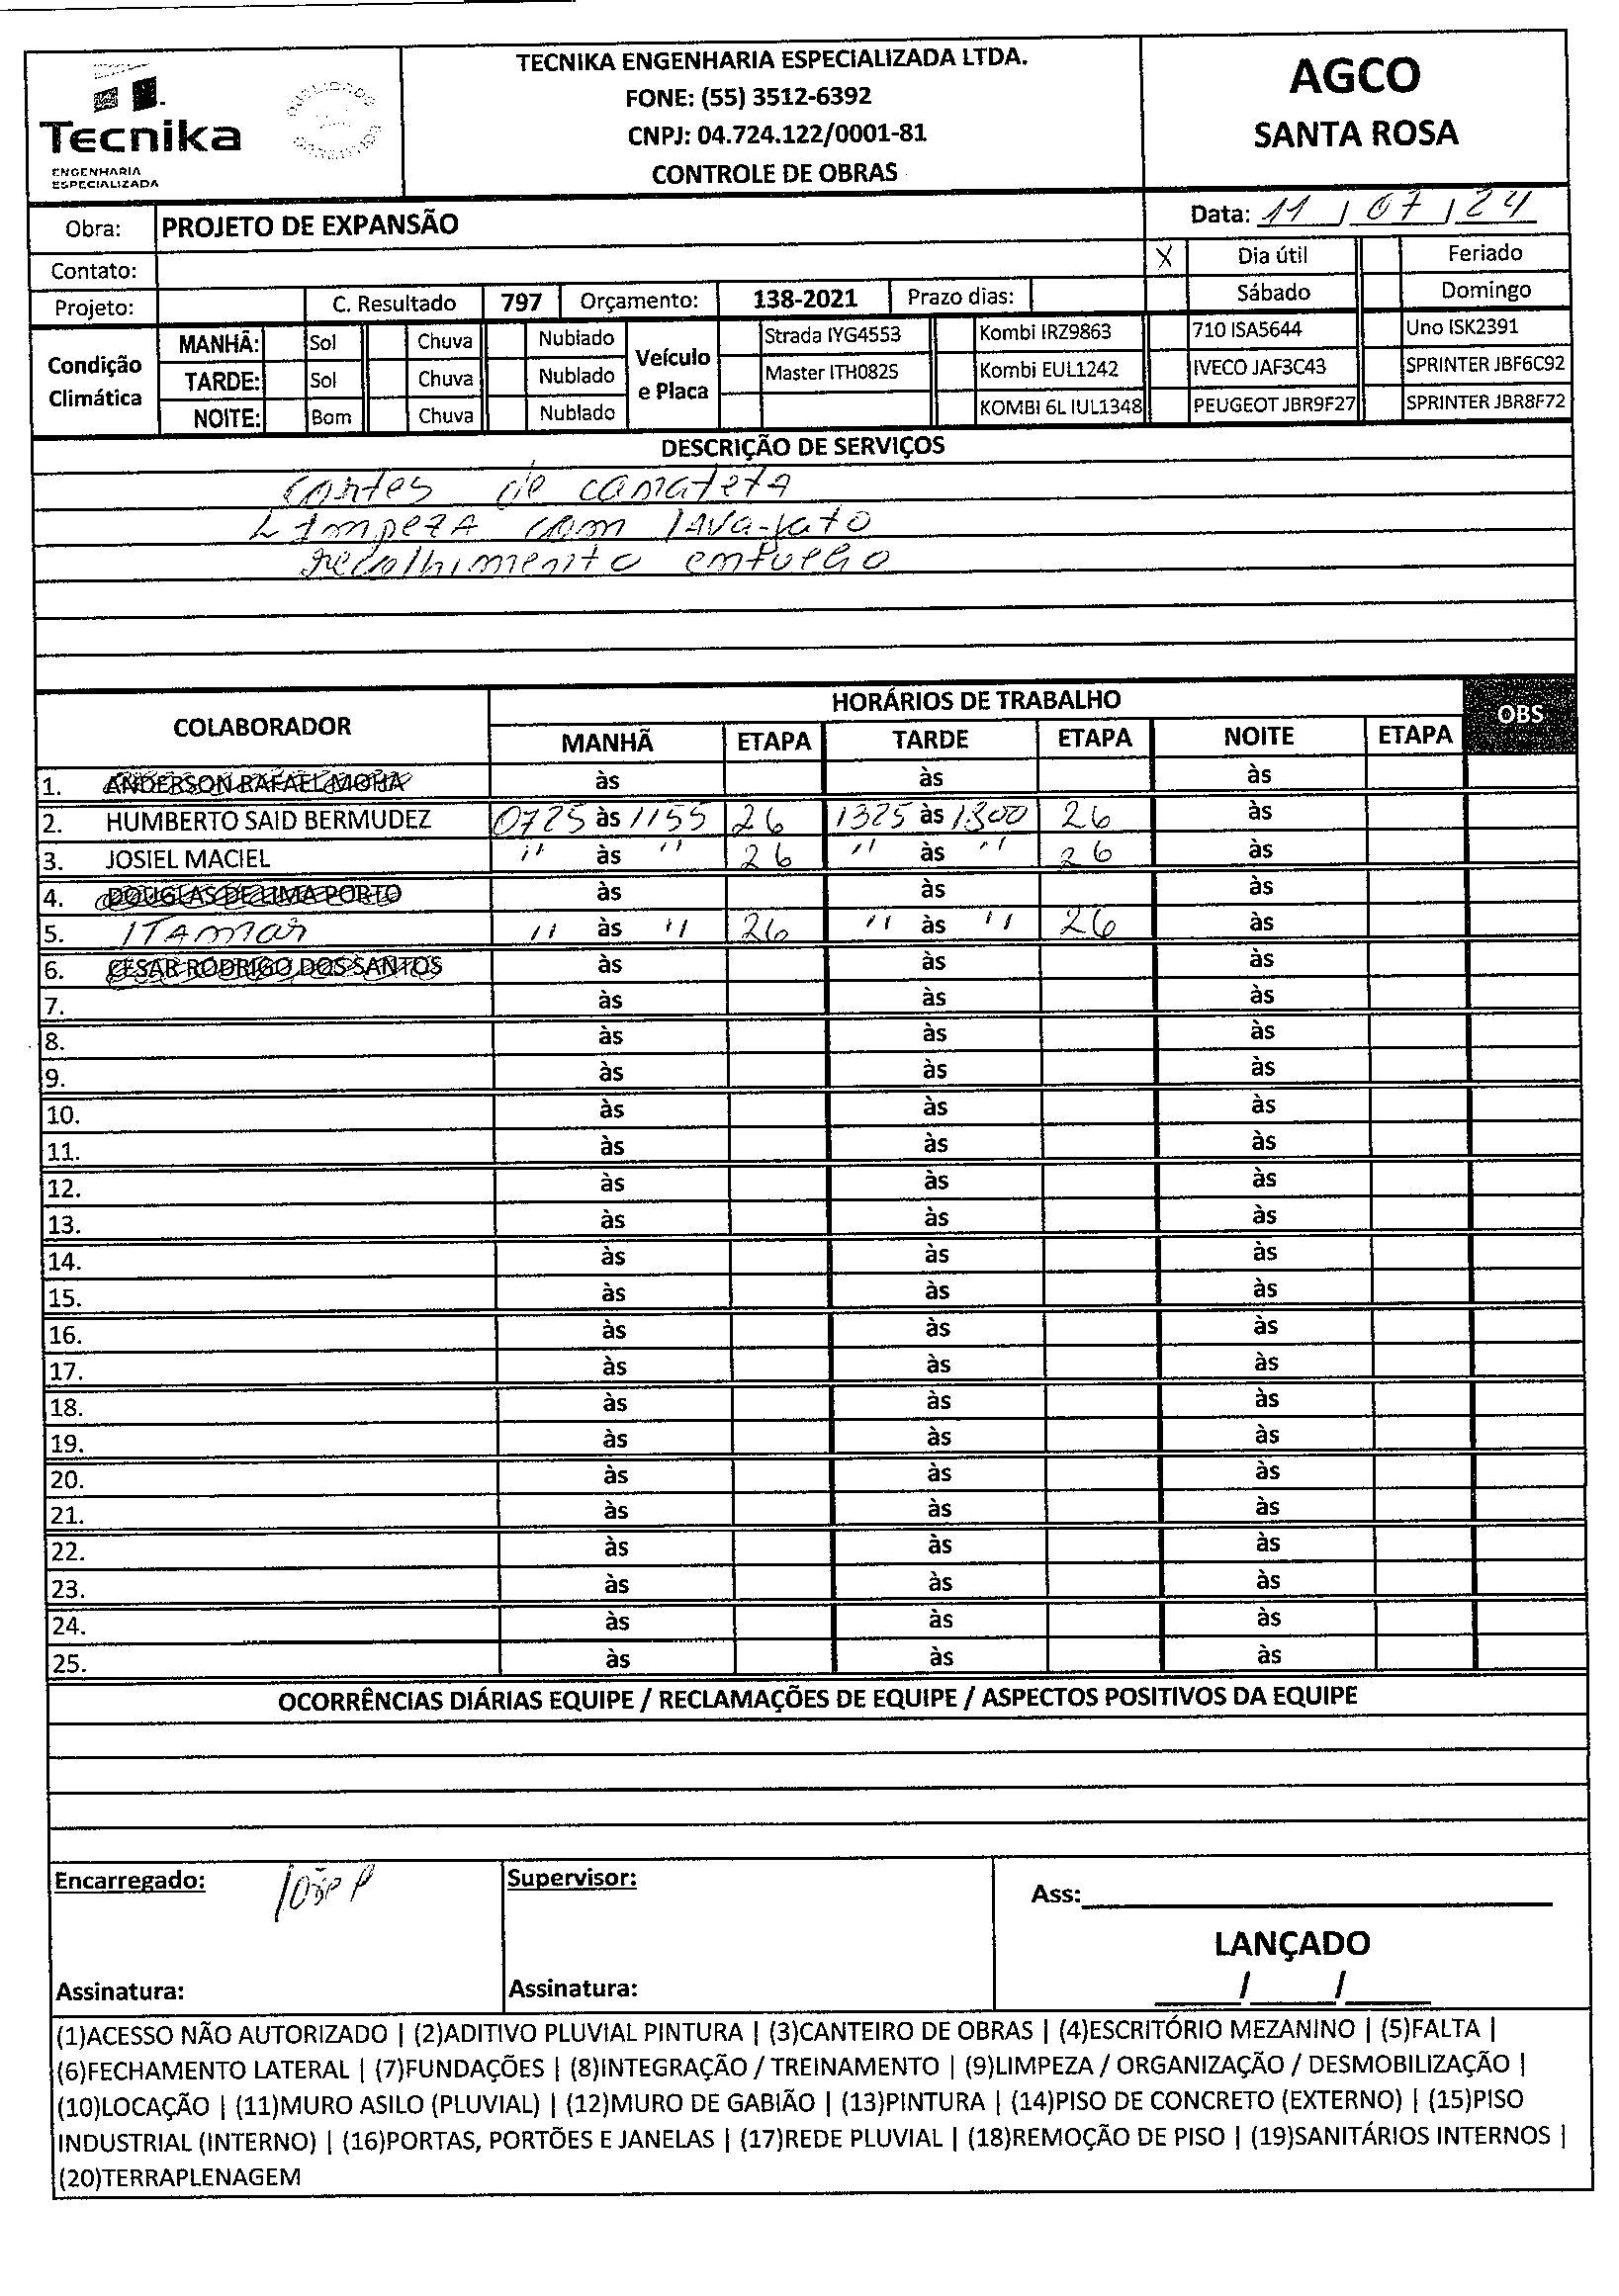 TECNIKA ENGENHARIA ESPECIALIZADA LTDA.
FONE: (55) 3512-6392
CNPJ: 04.724.122/0001-81
CONTROLE DE OBRAS
Tecnika
ENGENHARIA
ESPECIALIZADA
AGCO
SANTA ROSA
Obra: PROJETO DE EXPANSÃO
Data: 11 / 07 / 24
Contato:
X Dia útil Feriado
Sábado Domingo
Projeto: C. Resultado 797 Orçamento: 138-2021 Prazo dias:
Condição Climática
MANHÃ: Sol Chuva Nublado
TARDE: Sol Chuva Nublado
NOITE: Bom Chuva Nublado
Veículo e Placa
Strada IYG4553 Kombi IRZ9863 710 ISA5644 Uno ISK2391
Master ITH0825 Kombi EUL1242 IVECO JAF3C43 SPRINTER JBF6C92
KOMBI 6L IUL1348 PEUGEOT JBR9F27 SPRINTER JBR8F72
DESCRIÇÃO DE SERVIÇOS
cortes de canaleta
Limpeza com lava-jato
recolhimento entulho
COLABORADOR HORÁRIOS DE TRABALHO OBS
MANHÃ ETAPA TARDE ETAPA NOITE ETAPA
1. ANDERSON RAFAEL MOHA às às às
2. HUMBERTO SAID BERMUDEZ 0725 às 1155 26 1325 às 1800 26 às
3. JOSIEL MACIEL " às " 26 " às " 26 às
4. DOUGLAS DE LIMA PORTO às às às
5. ITAMAR " às " 26 " às " 26 às
6. CESAR RODRIGO DOS SANTOS às às às
7. às às às
8. às às às
9. às às às
10. às às às
11. às às às
12. às às às
13. às às às
14. às às às
15. às às às
16. às às às
17. às às às
18. às às às
19. às às às
20. às às às
21. às às às
22. às às às
23. às às às
24. às às às
25. às às às
OCORRÊNCIAS DIÁRIAS EQUIPE / RECLAMAÇÕES DE EQUIPE / ASPECTOS POSITIVOS DA EQUIPE
Encarregado:
Assinatura:
Supervisor:
Assinatura:
Ass:
LANÇADO
/ /
(1)ACESSO NÃO AUTORIZADO | (2)ADITIVO PLUVIAL PINTURA | (3)CANTEIRO DE OBRAS | (4)ESCRITÓRIO MEZANINO | (5)FALTA |
(6)FECHAMENTO LATERAL | (7)FUNDAÇÕES | (8)INTEGRAÇÃO / TREINAMENTO | (9)LIMPEZA / ORGANIZAÇÃO / DESMOBILIZAÇÃO |
(10)LOCAÇÃO | (11)MURO ASILO (PLUVIAL) | (12)MURO DE GABIÃO | (13)PINTURA | (14)PISO DE CONCRETO (EXTERNO) | (15)PISO
INDUSTRIAL (INTERNO) | (16)PORTAS, PORTÕES E JANELAS | (17)REDE PLUVIAL | (18)REMOÇÃO DE PISO | (19)SANITÁRIOS INTERNOS |
(20)TERRAPLENAGEM